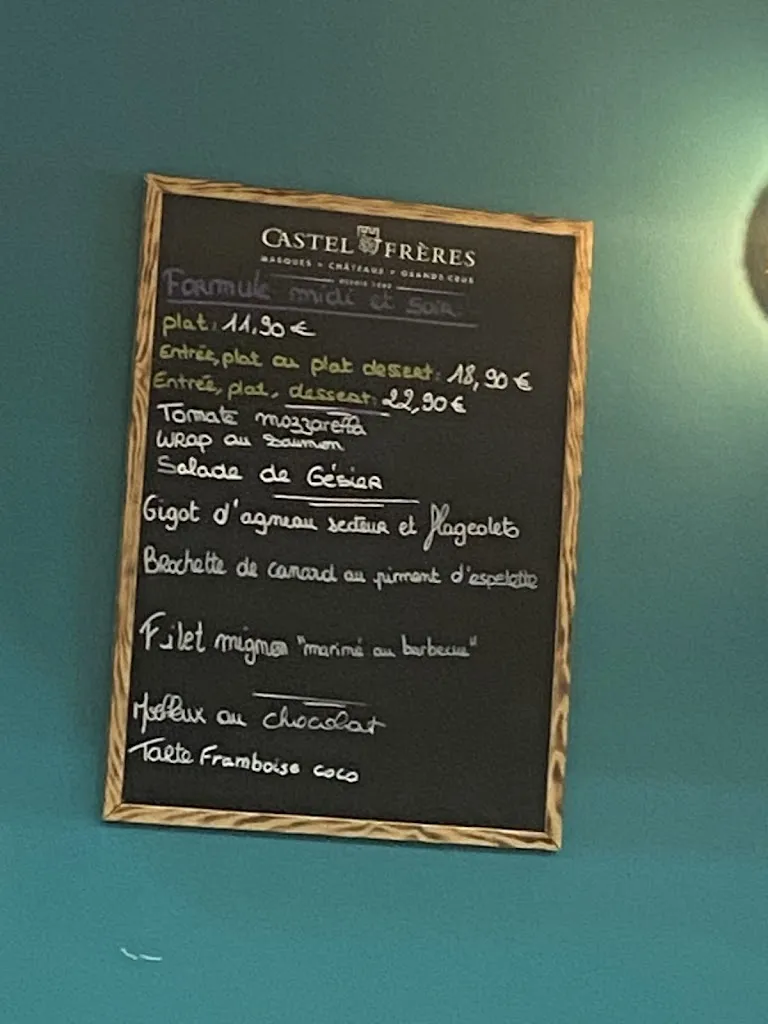 CASTEL FRÈRES
MARQUES • CHÂTEAUX • GRANDS CRUS
Formule midi et soir
plat: 11,90 €
Entrée, plat ou plat dessert: 18,90 €
Entrée, plat, dessert: 22,90 €
Tomate mozzarella
WRap au saumon
Salade de Gésier
Gigot d'agneau secteur et flageolets
Brochette de canard au piment d'espelette
Filet mignon "mariné au barbecue"
Moelleux au chocolat
Tarte Framboise coco